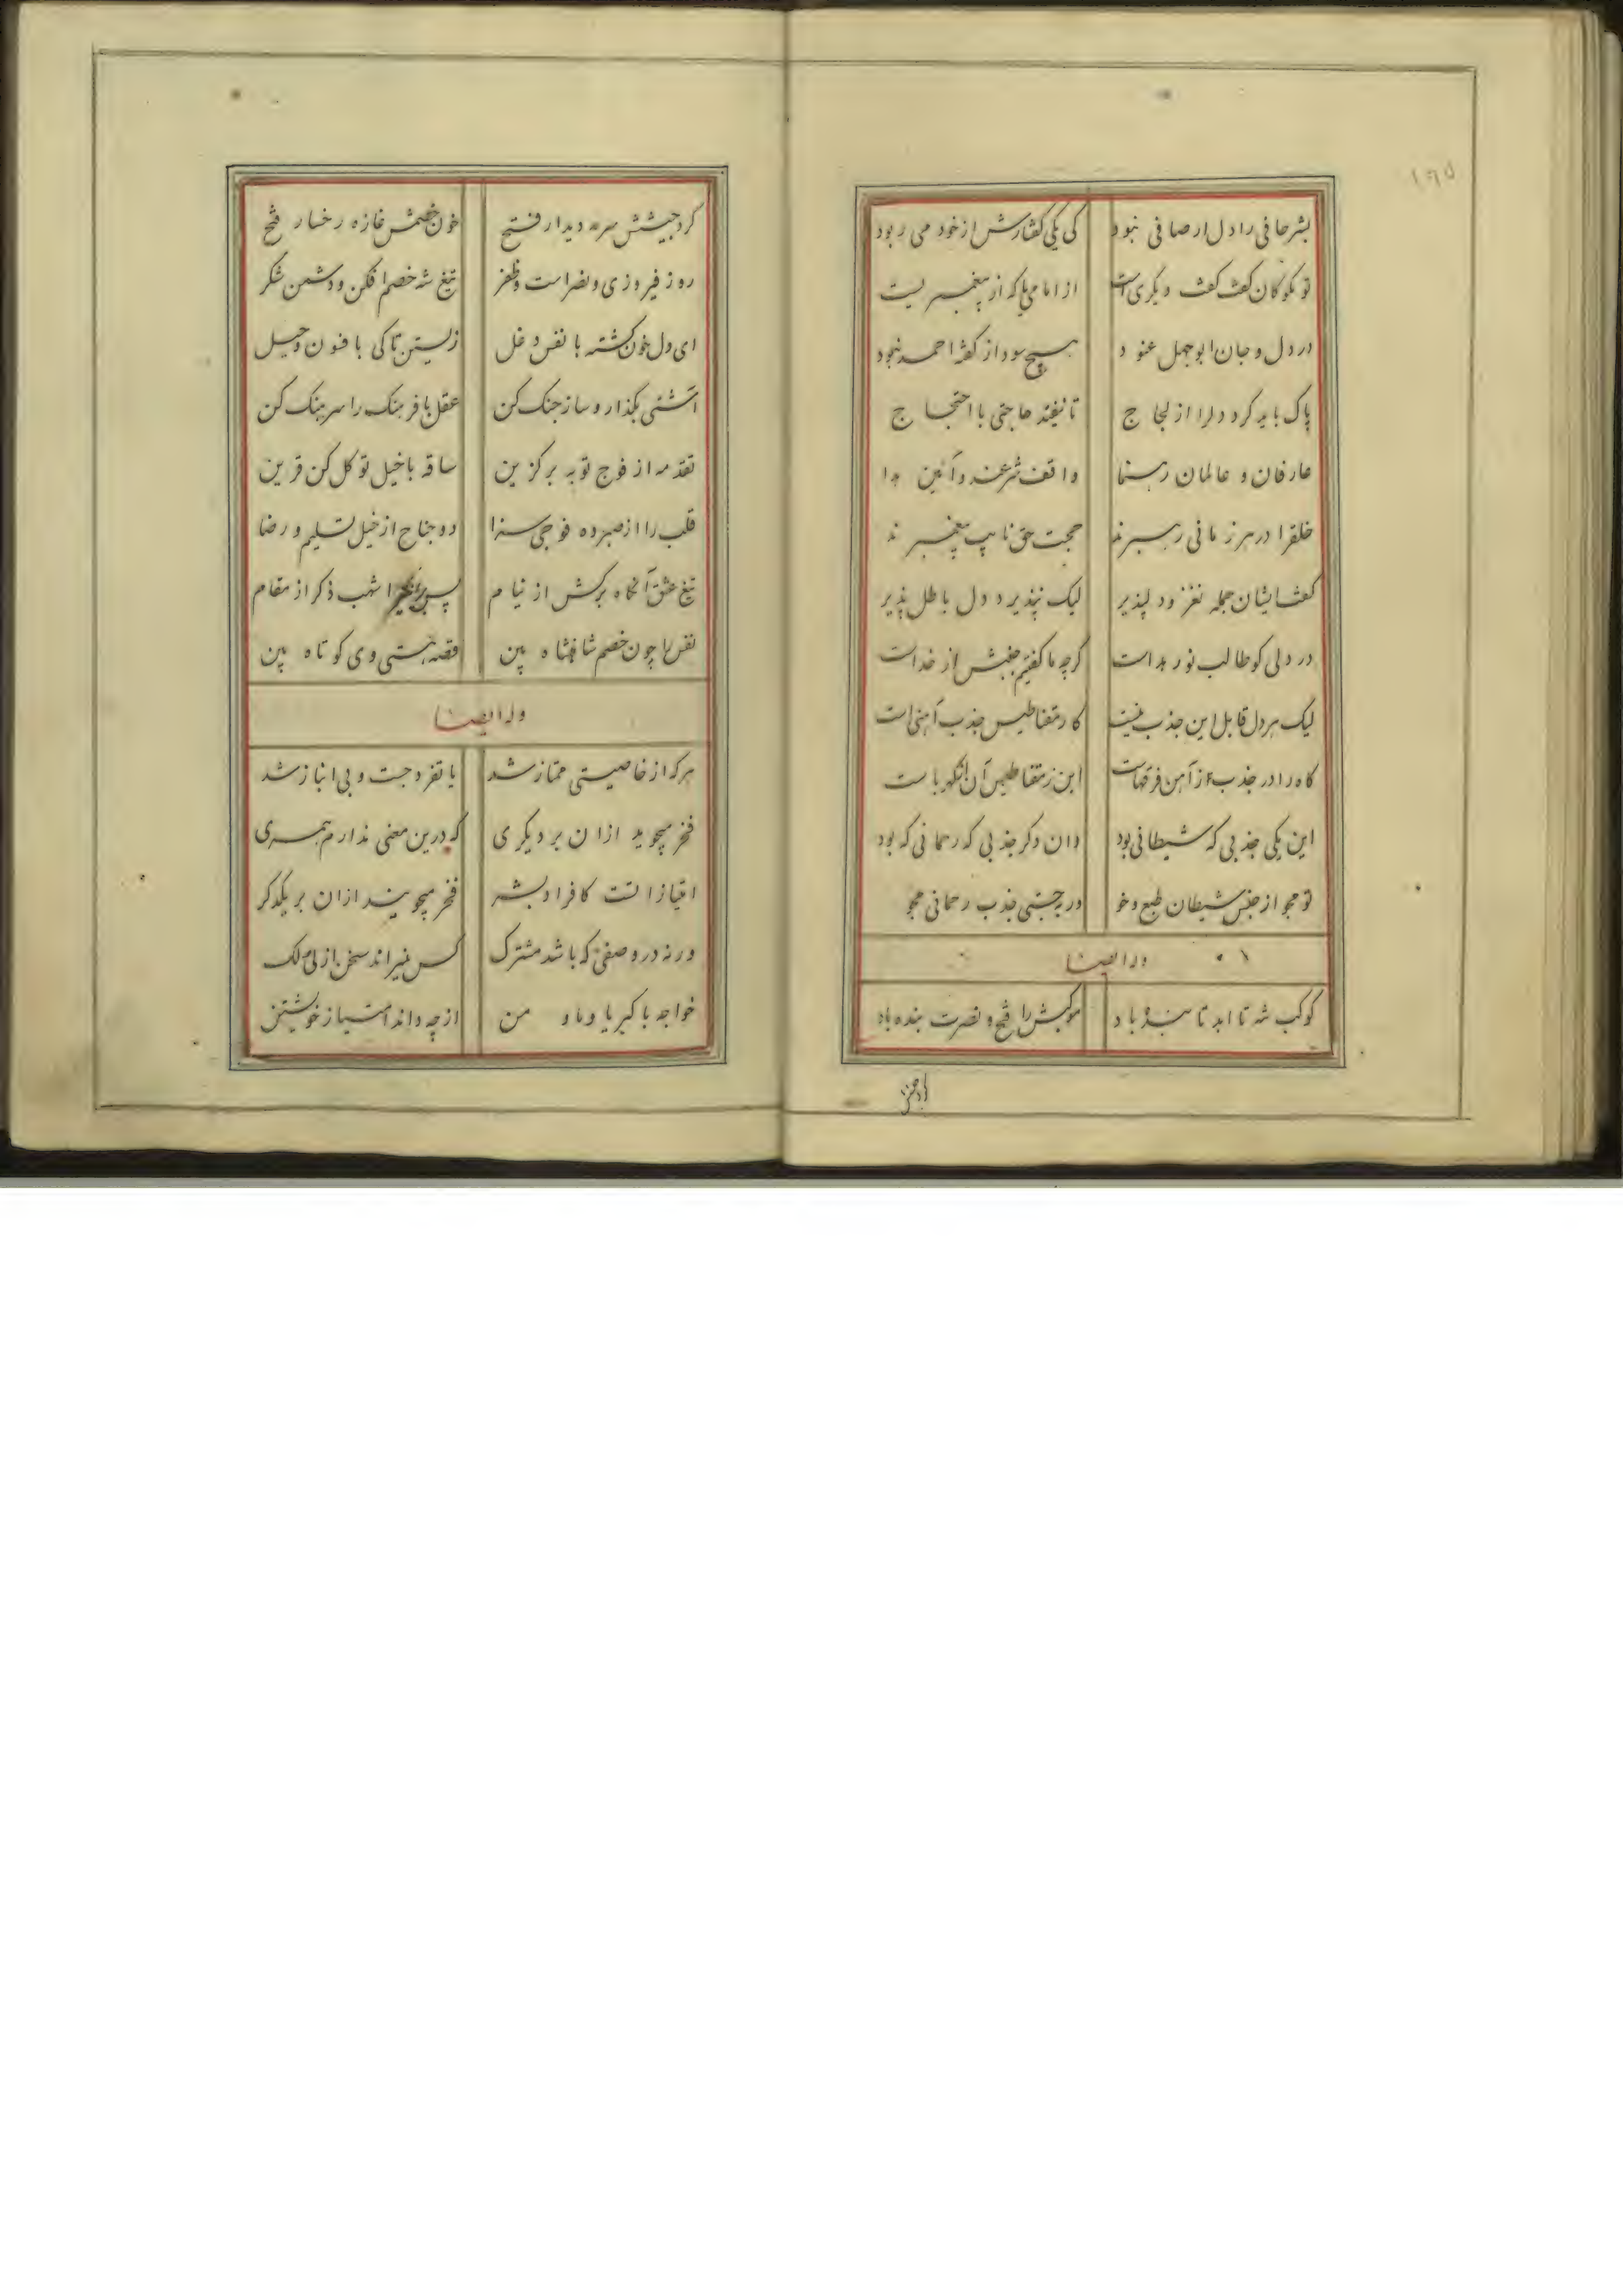 ۱۹۵
بشر حافی را دل ار صافی نبود کی یکی گفتارش از خود می ربود
تو مگو کان گفت گفت دیگریست از امامی یا که از پیغمبریست
در دل و جان ابوجهل عنود هیچ سود از گفت احمد نبود
پاک باید کرد دلرا از لجاج تا نیفتد حاجتی با احتجاج
عارفان و عالمان رهنما واقف شرعند و آئین هدا
خلقرا در هر زمانی رهبرند حجت حق نایب پیغمبرند
گفت ایشان جمله نغز و دلپذیر لیک نپذیرد دل باطل پذیر
در دلی کو طالب نور هداست گرچه ما گفتیم جنبش از خداست
لیک هر دل قابل این جذب نیست کار مقناطیس جذب آهنی است
کاه را در جذب از آهن فرقهاست این ز مقناطیس آن از کهرباست
این یکی جذبی که شیطانی بود وان دگر جذبی که رحمانی که بود
تو مجو از جنس شیطان طبع و خو ور نه جستی جذب رحمانی مجو
وله ایضا
کوکب شه تا ابد تابنده باد موکبش را فتح و نصرت بنده باد
گرد جیشش سرمه دیدار فتح خون خصمش غازه رخسار فتح
روز فیروزی و نصر است و ظفر تیغ شه خصم افکن و دشمن شکر
ای دل خون گشته با نفس دغل زیستن تا کی با فسون و حیل
آشتی بگذار و ساز جنک کن عقل با فرهنک را سرهنک کن
تقدمه از فوج توبه برگزین ساقه با خیل توکل کن قرین
قلب را از صبر ده فوجی سزا دو جناح از خیل تسلیم و رضا
تیغ عشق آنگاه برکش از نیام پس اشهب ذکر از مقام
نفس را چون خصم شاهنشاه بین قصه هستی وی کوتاه بین
وله ایضا
هرکه از خاصیتی ممتاز شد با تفرد جست و بی انباز شد
فخر میجوید ازان بر دیگری که درین معنی ندارم همسری
امتیاز است کافراد بشر فخر میجویند ازان بر یکدگر
ورنه در وصفی که باشد مشترک کس نمیراند سخن از لی و لک
خواجه با کبریا و ما و من از چه داند امتیاز خویشتن